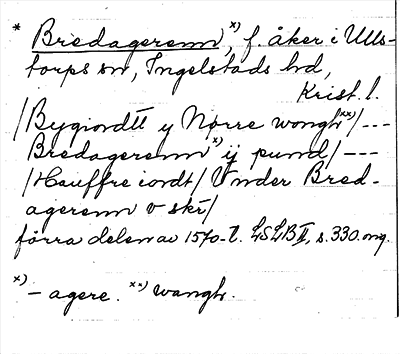 * Bredagerenn x), f. åker i Ulls-
torps sn, Ingelstads hd,
Krist. l.
/Bygiordtt y Nørre wongh xx)/---
Bredagerenn x) ij pund/---
/Hauffre iordt/ Vnder Bred-
agerenn v skr/
förra delen av 1570-t. LSLB II, s. 330. ny.
x) – agere. xx) wangh.